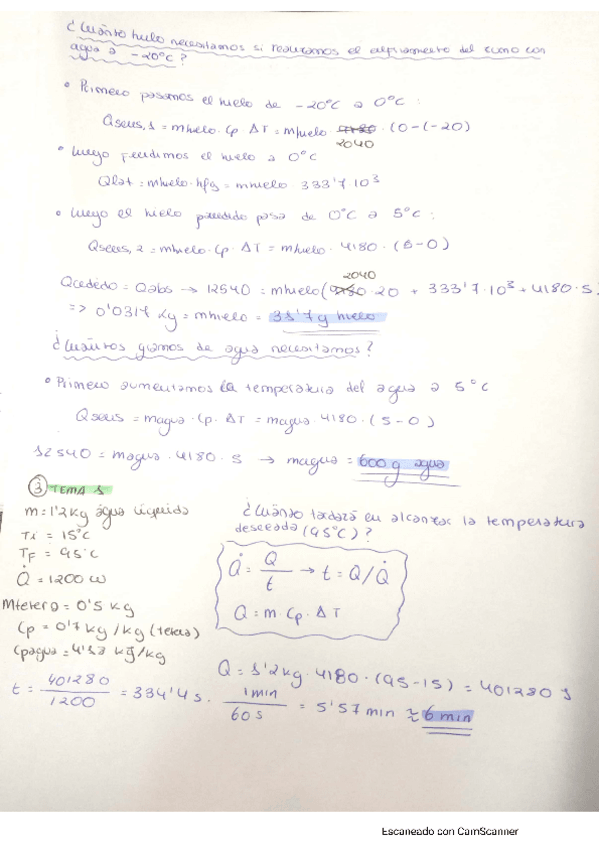 ¿Cuánto hielo necesitamos si realizamos el enfriamiento del zumo con
agua a -20°C?
• Primero pasamos el hielo de -20°C a 0°C:
Qsens,1 = mhielo · Cp · ΔT = mhielo · 4180 · (0-(-20)
2040
• Luego fundimos el hielo a 0°C
Qlat = mhielo · hfg = mhielo 333'7 10³
• Luego el hielo fundido pasa de 0°C a 5°C:
Qsens,2 = mhielo · Cp · ΔT = mhielo · 4180 · (5-0)
2040
Qcedido = Qabs → 12540 = mhielo (4180 · 20 + 333'7 · 10³ + 4180 · 5
=> 0'0317 Kg = mhielo = 31'7 g hielo
¿Cuántos gramos de agua necesitamos?
• Primero aumentamos la temperatura del agua a 5°C
Qsens = magua · Cp · ΔT = magua · 4180 · (5-0)
12540 = magua · 4180 · 5 → magua = 600 g agua
③ TEMA 1
m = 1'2 Kg agua líquida
Ti = 15°C
TF = 95°C
Q̇ = 1200 W
Mtetera = 0'5 Kg
Cp = 0'7 Kg/Kg (tetera)
Cpagua = 4'18 KJ/Kg
¿Cuánto tardará en alcanzar la temperatura
deseada (95°C)?
Q̇ = Q/t → t = Q/Q̇
Q = m · Cp · ΔT
Q = 1'2 kg · 4180 · (95-15) = 401280 J
t = 401280/1200 = 334'4 s · 1 min/60 s = 5'57 min ≈ 6 min
Escaneado con CamScanner